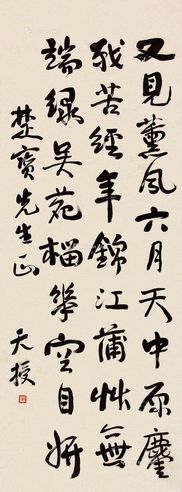 又見薰風六月天中原鏖
戰苦經年錦江蒲艸無
端綠吳苑榴華空自妍
楚寶先生正
天授